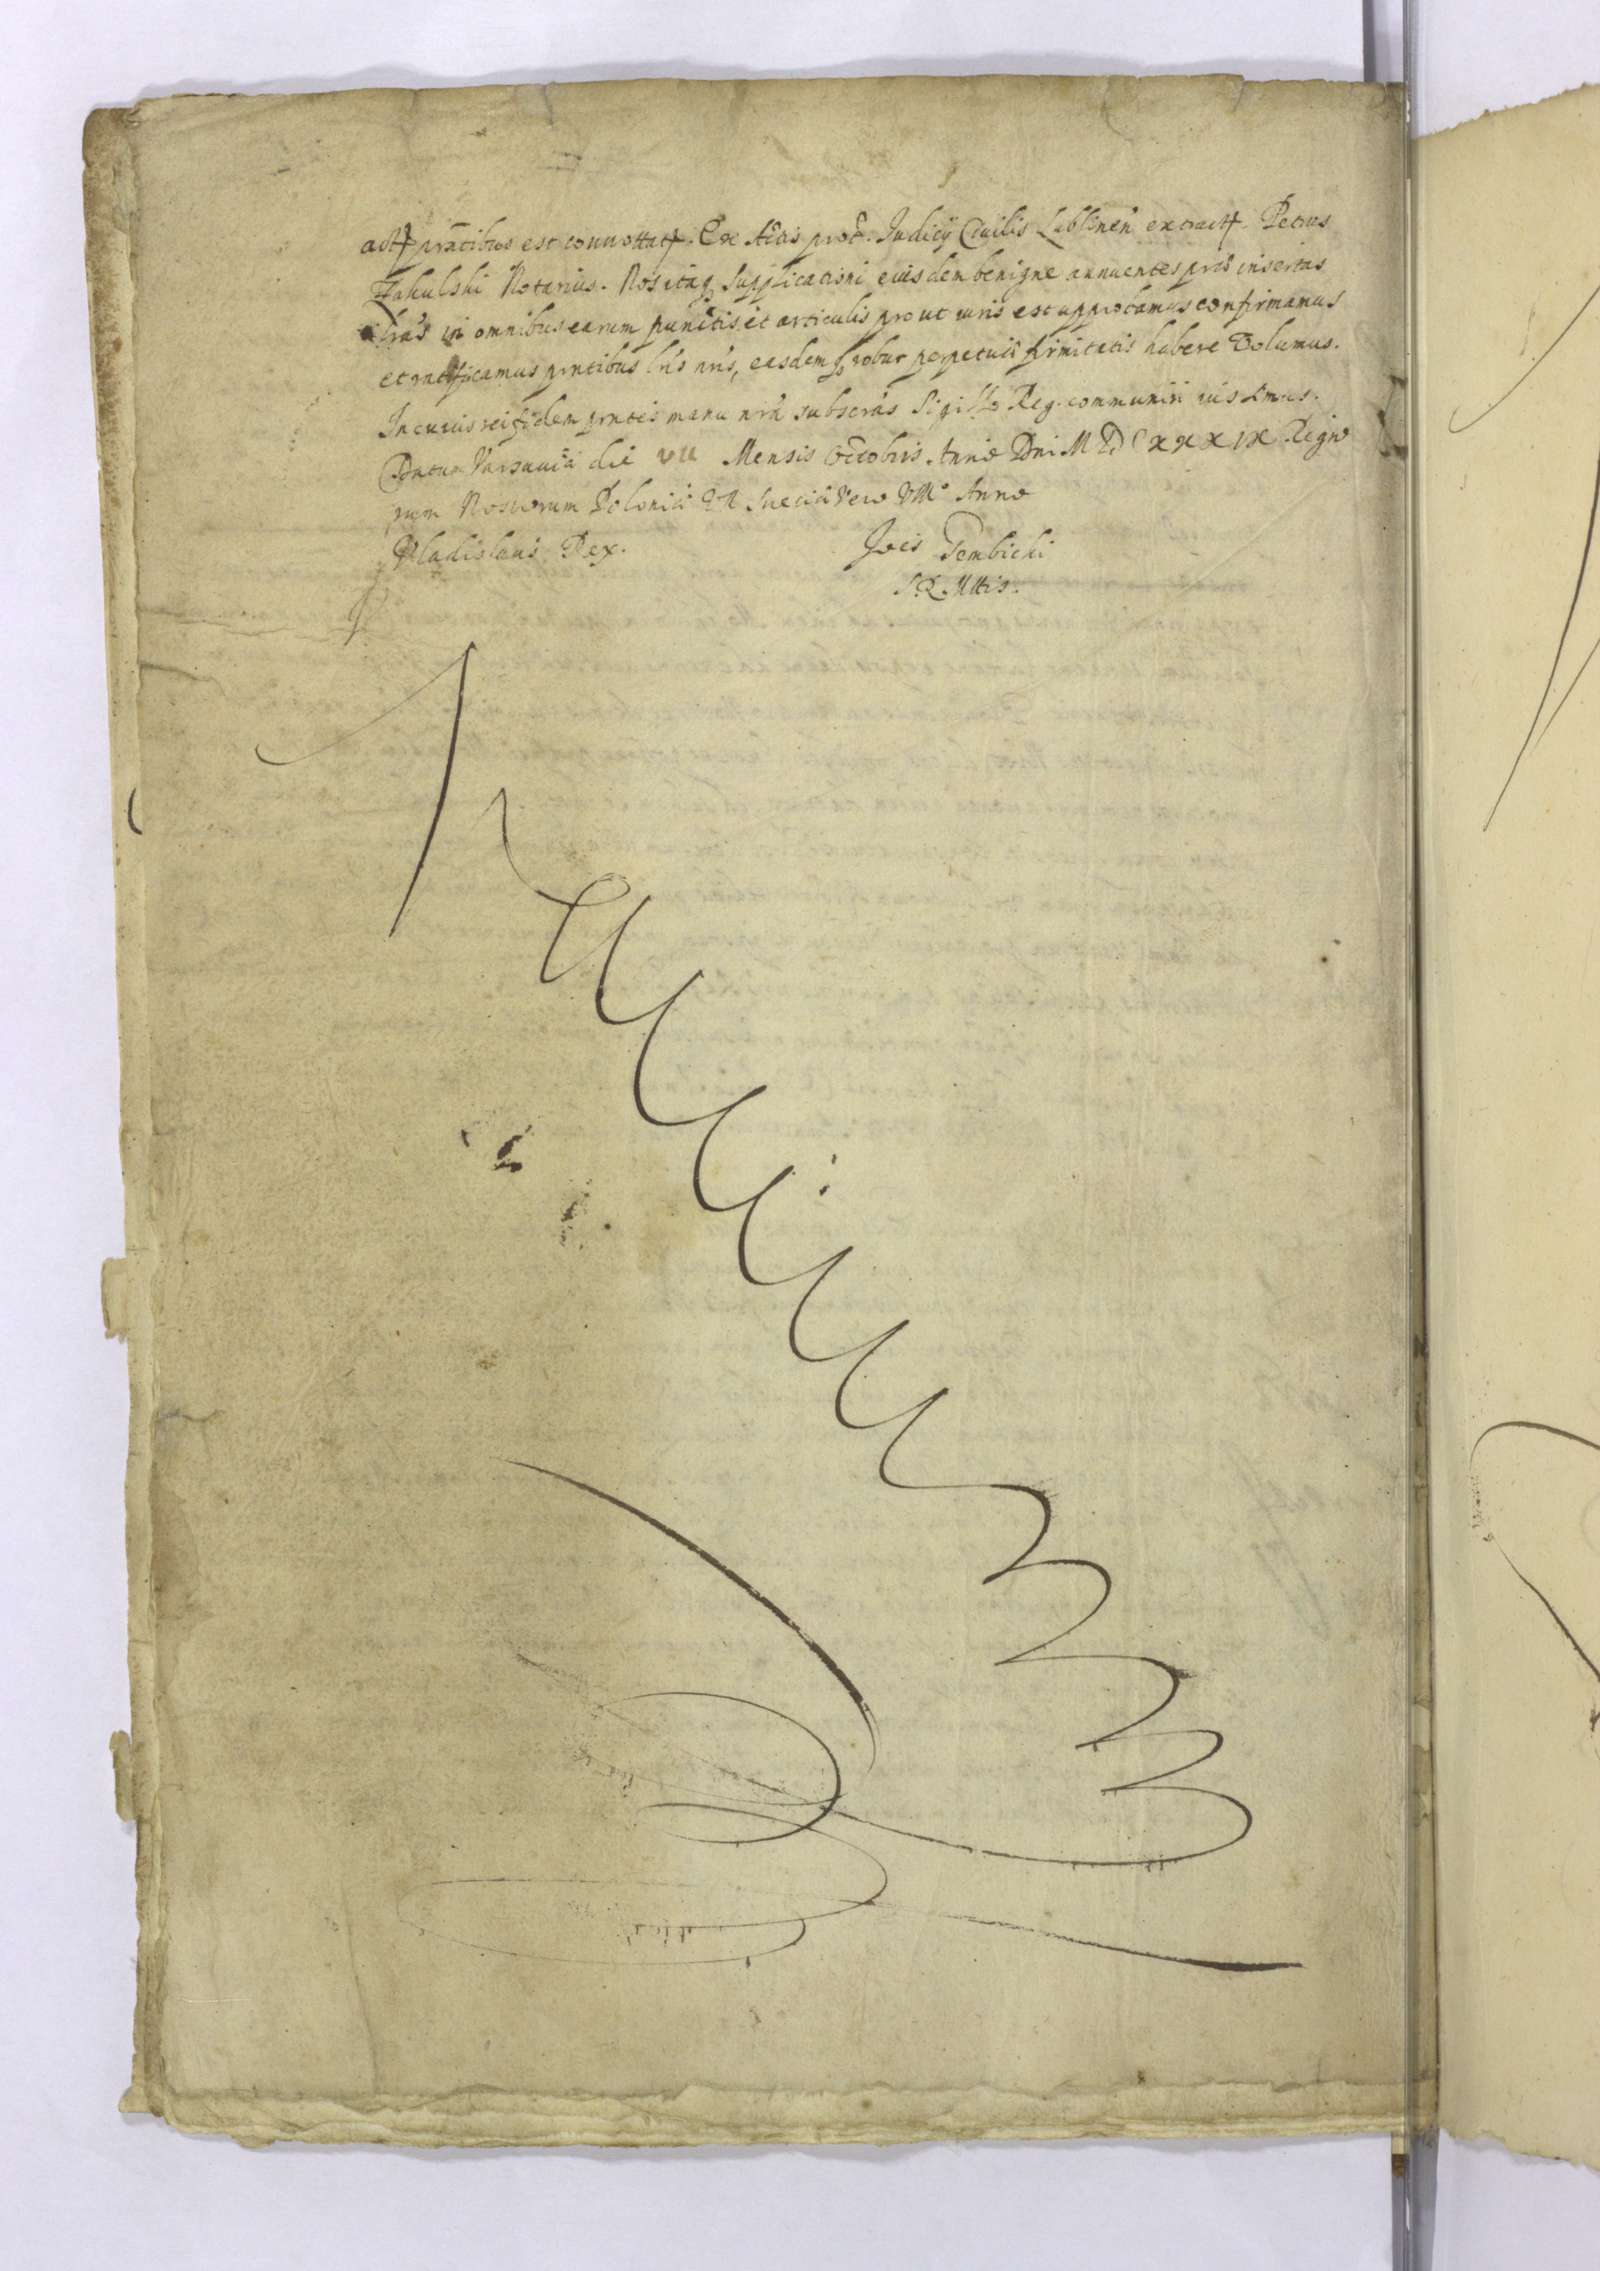 act prntibus est connottat. Ex Actis prot. Judicij Civilis Lublinen extract. Petrus
Zakulski Notarius. Nos itaq supplicationi eiusdem benigne annuentes pns insertas
lras in omnibus earum punctis et articulis prout iuris est approbamus confirmamus
et ratificamus prntibus lris nris, easdemq robur perpetuae firmitatis habere Volumus.
In cuius rei fidem prntes manu nra subscras Sigillo Reg. communiri iussimus.
Datum Varsaviae die VII Mensis Octobris Anno Dni MDCXXXIX Regno
rum Nostrorum Poloniae VII Sueciae Vero VIII Anno
Vladislaus Rex.
Jois Gembicki
S.R. Mttis.